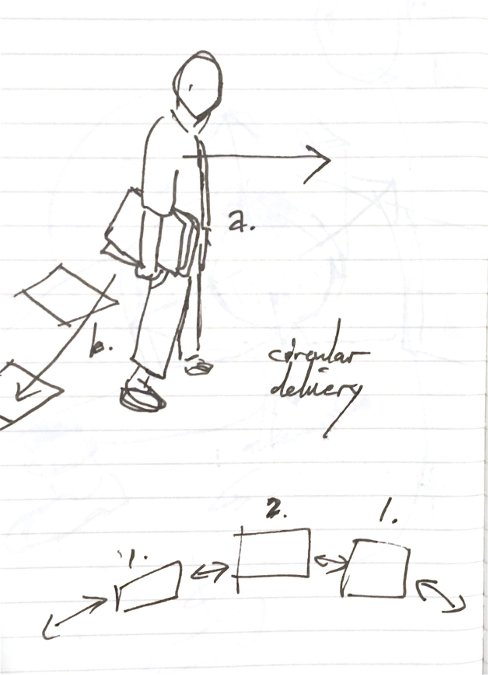 a.
b.
circular
delivery
2.
1.
1.